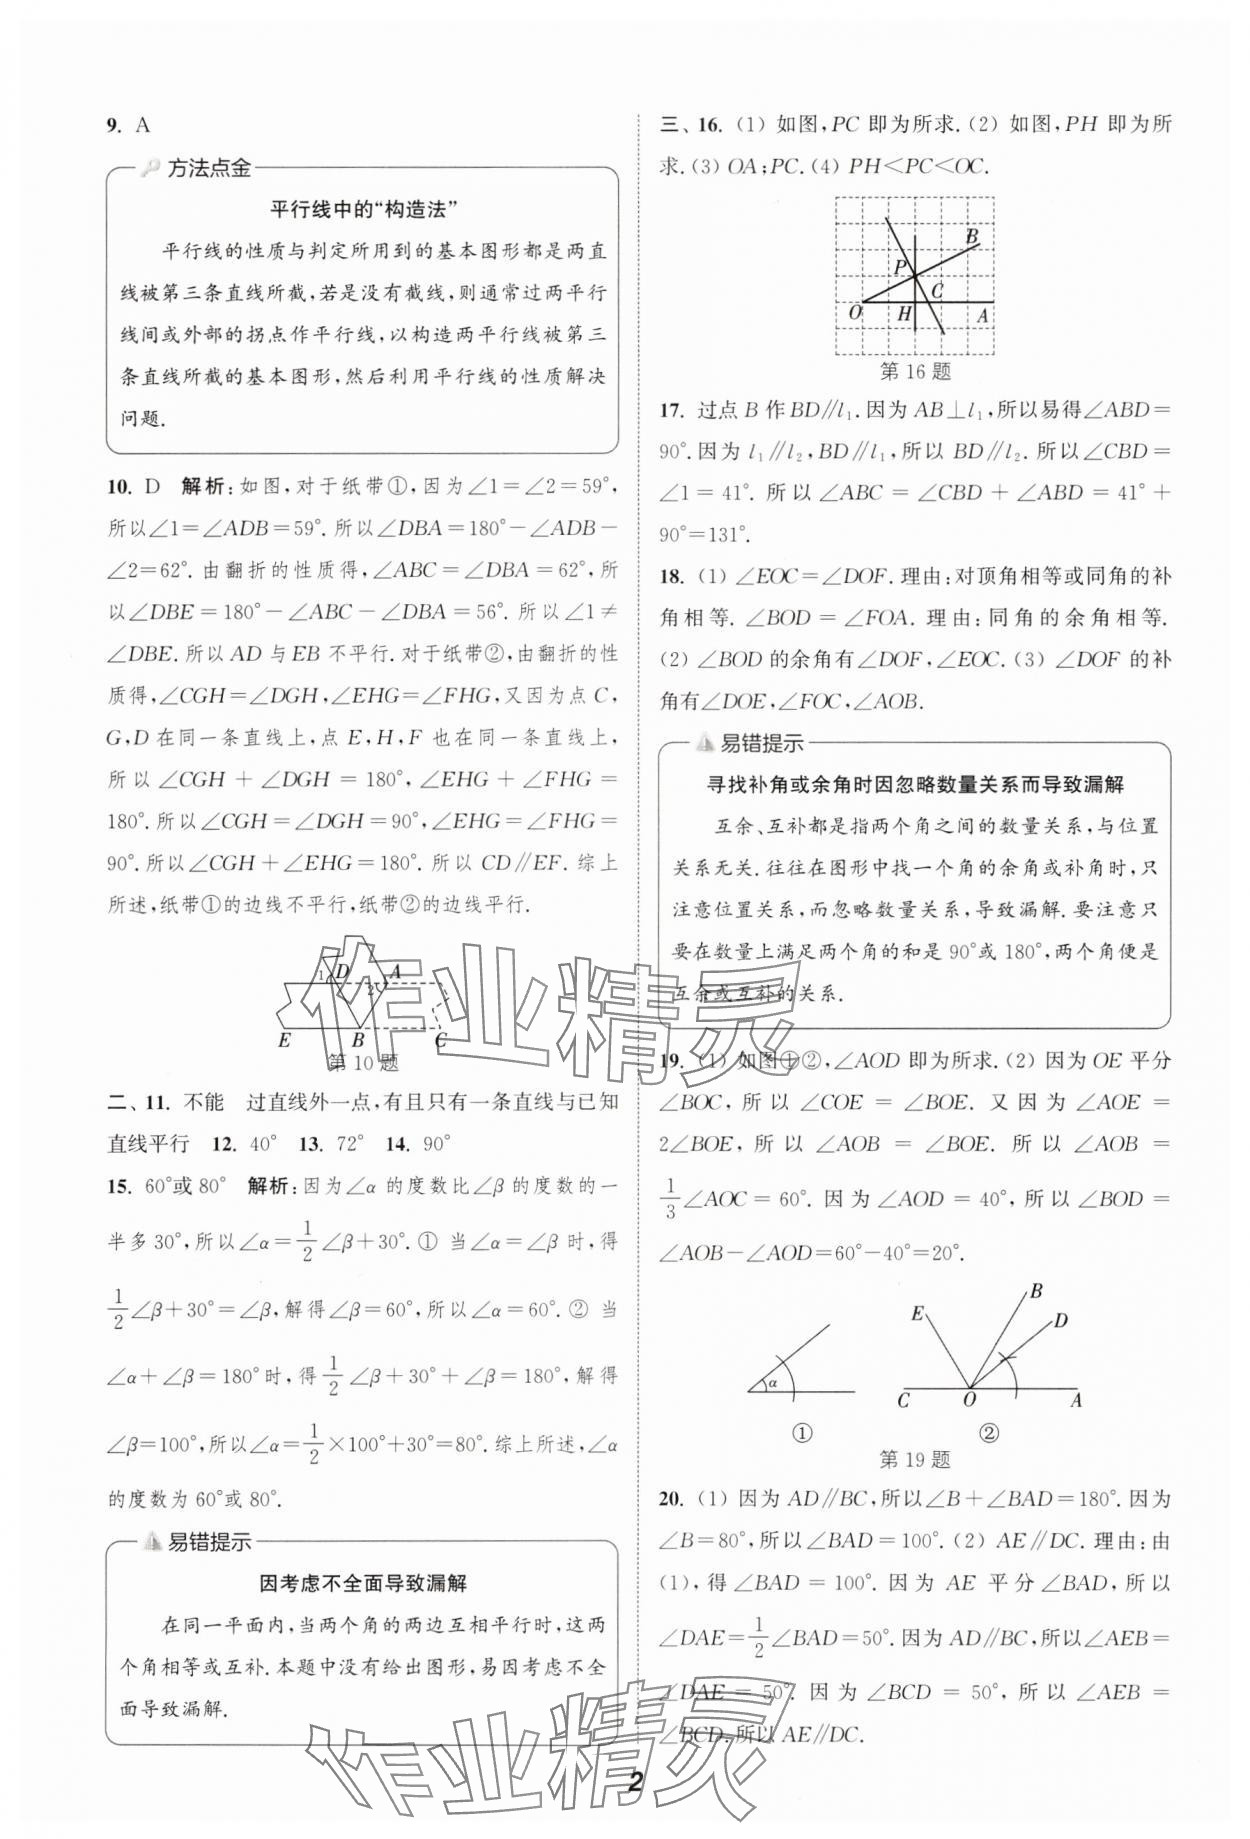 9. A
方法点金
平行线中的“构造法”
平行线的性质与判定所用到的基本图形都是两直
线被第三条直线所截,若是没有截线,则通常过两平行
线间或外部的拐点作平行线,以构造两平行线被第三
条直线所截的基本图形,然后利用平行线的性质解决
问题.
10. D 解析:如图,对于纸带①,因为∠1=∠2=59°,
所以∠1=∠ADB=59°.所以∠DBA=180°-∠ADB-
∠2=62°.由翻折的性质得,∠ABC=∠DBA=62°,所
以∠DBE=180°-∠ABC-∠DBA=56°.所以∠1≠
∠DBE.所以AD与EB不平行.对于纸带②,由翻折的性
质得,∠CGH=∠DGH,∠EHG=∠FHG,又因为点C,
G,D在同一条直线上,点E,H,F也在同一条直线上,
所以∠CGH+∠DGH=180°,∠EHG+∠FHG=
180°.所以∠CGH=∠DGH=90°,∠EHG=∠FHG=
90°.所以∠CGH+∠EHG=180°.所以CD∥EF.综上
所述,纸带①的边线不平行,纸带②的边线平行.
1 D A
2
E B C
第10题
二、11. 不能 过直线外一点,有且只有一条直线与已知
直线平行 12. 40° 13. 72° 14. 90°
15. 60°或80° 解析:因为∠α的度数比∠β的度数的一
半多30°,所以∠α=1/2∠β+30°.① 当∠α=∠β时,得
1/2∠β+30°=∠β,解得∠β=60°,所以∠α=60°.② 当
∠α+∠β=180°时,得1/2∠β+30°+∠β=180°,解得
∠β=100°,所以∠α=1/2×100°+30°=80°.综上所述,∠α
的度数为60°或80°.
易错提示
因考虑不全面导致漏解
在同一平面内,当两个角的两边互相平行时,这两
个角相等或互补.本题中没有给出图形,易因考虑不全
面导致漏解.
三、16. (1) 如图,PC即为所求.(2) 如图,PH即为所
求.(3) OA;PC.(4) PH<PC<OC.
B
P
C
O H A
第16题
17. 过点B作BD∥l₁.因为AB⊥l₁,所以易得∠ABD=
90°.因为l₁∥l₂,BD∥l₁,所以BD∥l₂.所以∠CBD=
∠1=41°.所以∠ABC=∠CBD+∠ABD=41°+
90°=131°.
18. (1) ∠EOC=∠DOF.理由:对顶角相等或同角的补
角相等.∠BOD=∠FOA.理由:同角的余角相等.
(2) ∠BOD的余角有∠DOF,∠EOC.(3) ∠DOF的补
角有∠DOE,∠FOC,∠AOB.
易错提示
寻找补角或余角时因忽略数量关系而导致漏解
互余、互补都是指两个角之间的数量关系,与位置
关系无关.往往在图形中找一个角的余角或补角时,只
注意位置关系,而忽略数量关系,导致漏解.要注意只
要在数量上满足两个角的和是90°或180°,两个角便是
互余或互补的关系.
19. (1) 如图①②,∠AOD即为所求.(2) 因为OE平分
∠BOC,所以∠COE=∠BOE.又因为∠AOE=
2∠BOE,所以∠AOB=∠BOE.所以∠AOB=
1/3∠AOC=60°.因为∠AOD=40°,所以∠BOD=
∠AOB-∠AOD=60°-40°=20°.
E B D
α
C O A
① ②
第19题
20. (1) 因为AD∥BC,所以∠B+∠BAD=180°.因为
∠B=80°,所以∠BAD=100°.(2) AE∥DC.理由:由
(1),得∠BAD=100°.因为AE平分∠BAD,所以
∠DAE=1/2∠BAD=50°.因为AD∥BC,所以∠AEB=
∠DAE=50°.因为∠BCD=50°,所以∠AEB=
∠BCD.所以AE∥DC.
2
作业精灵
作业精灵